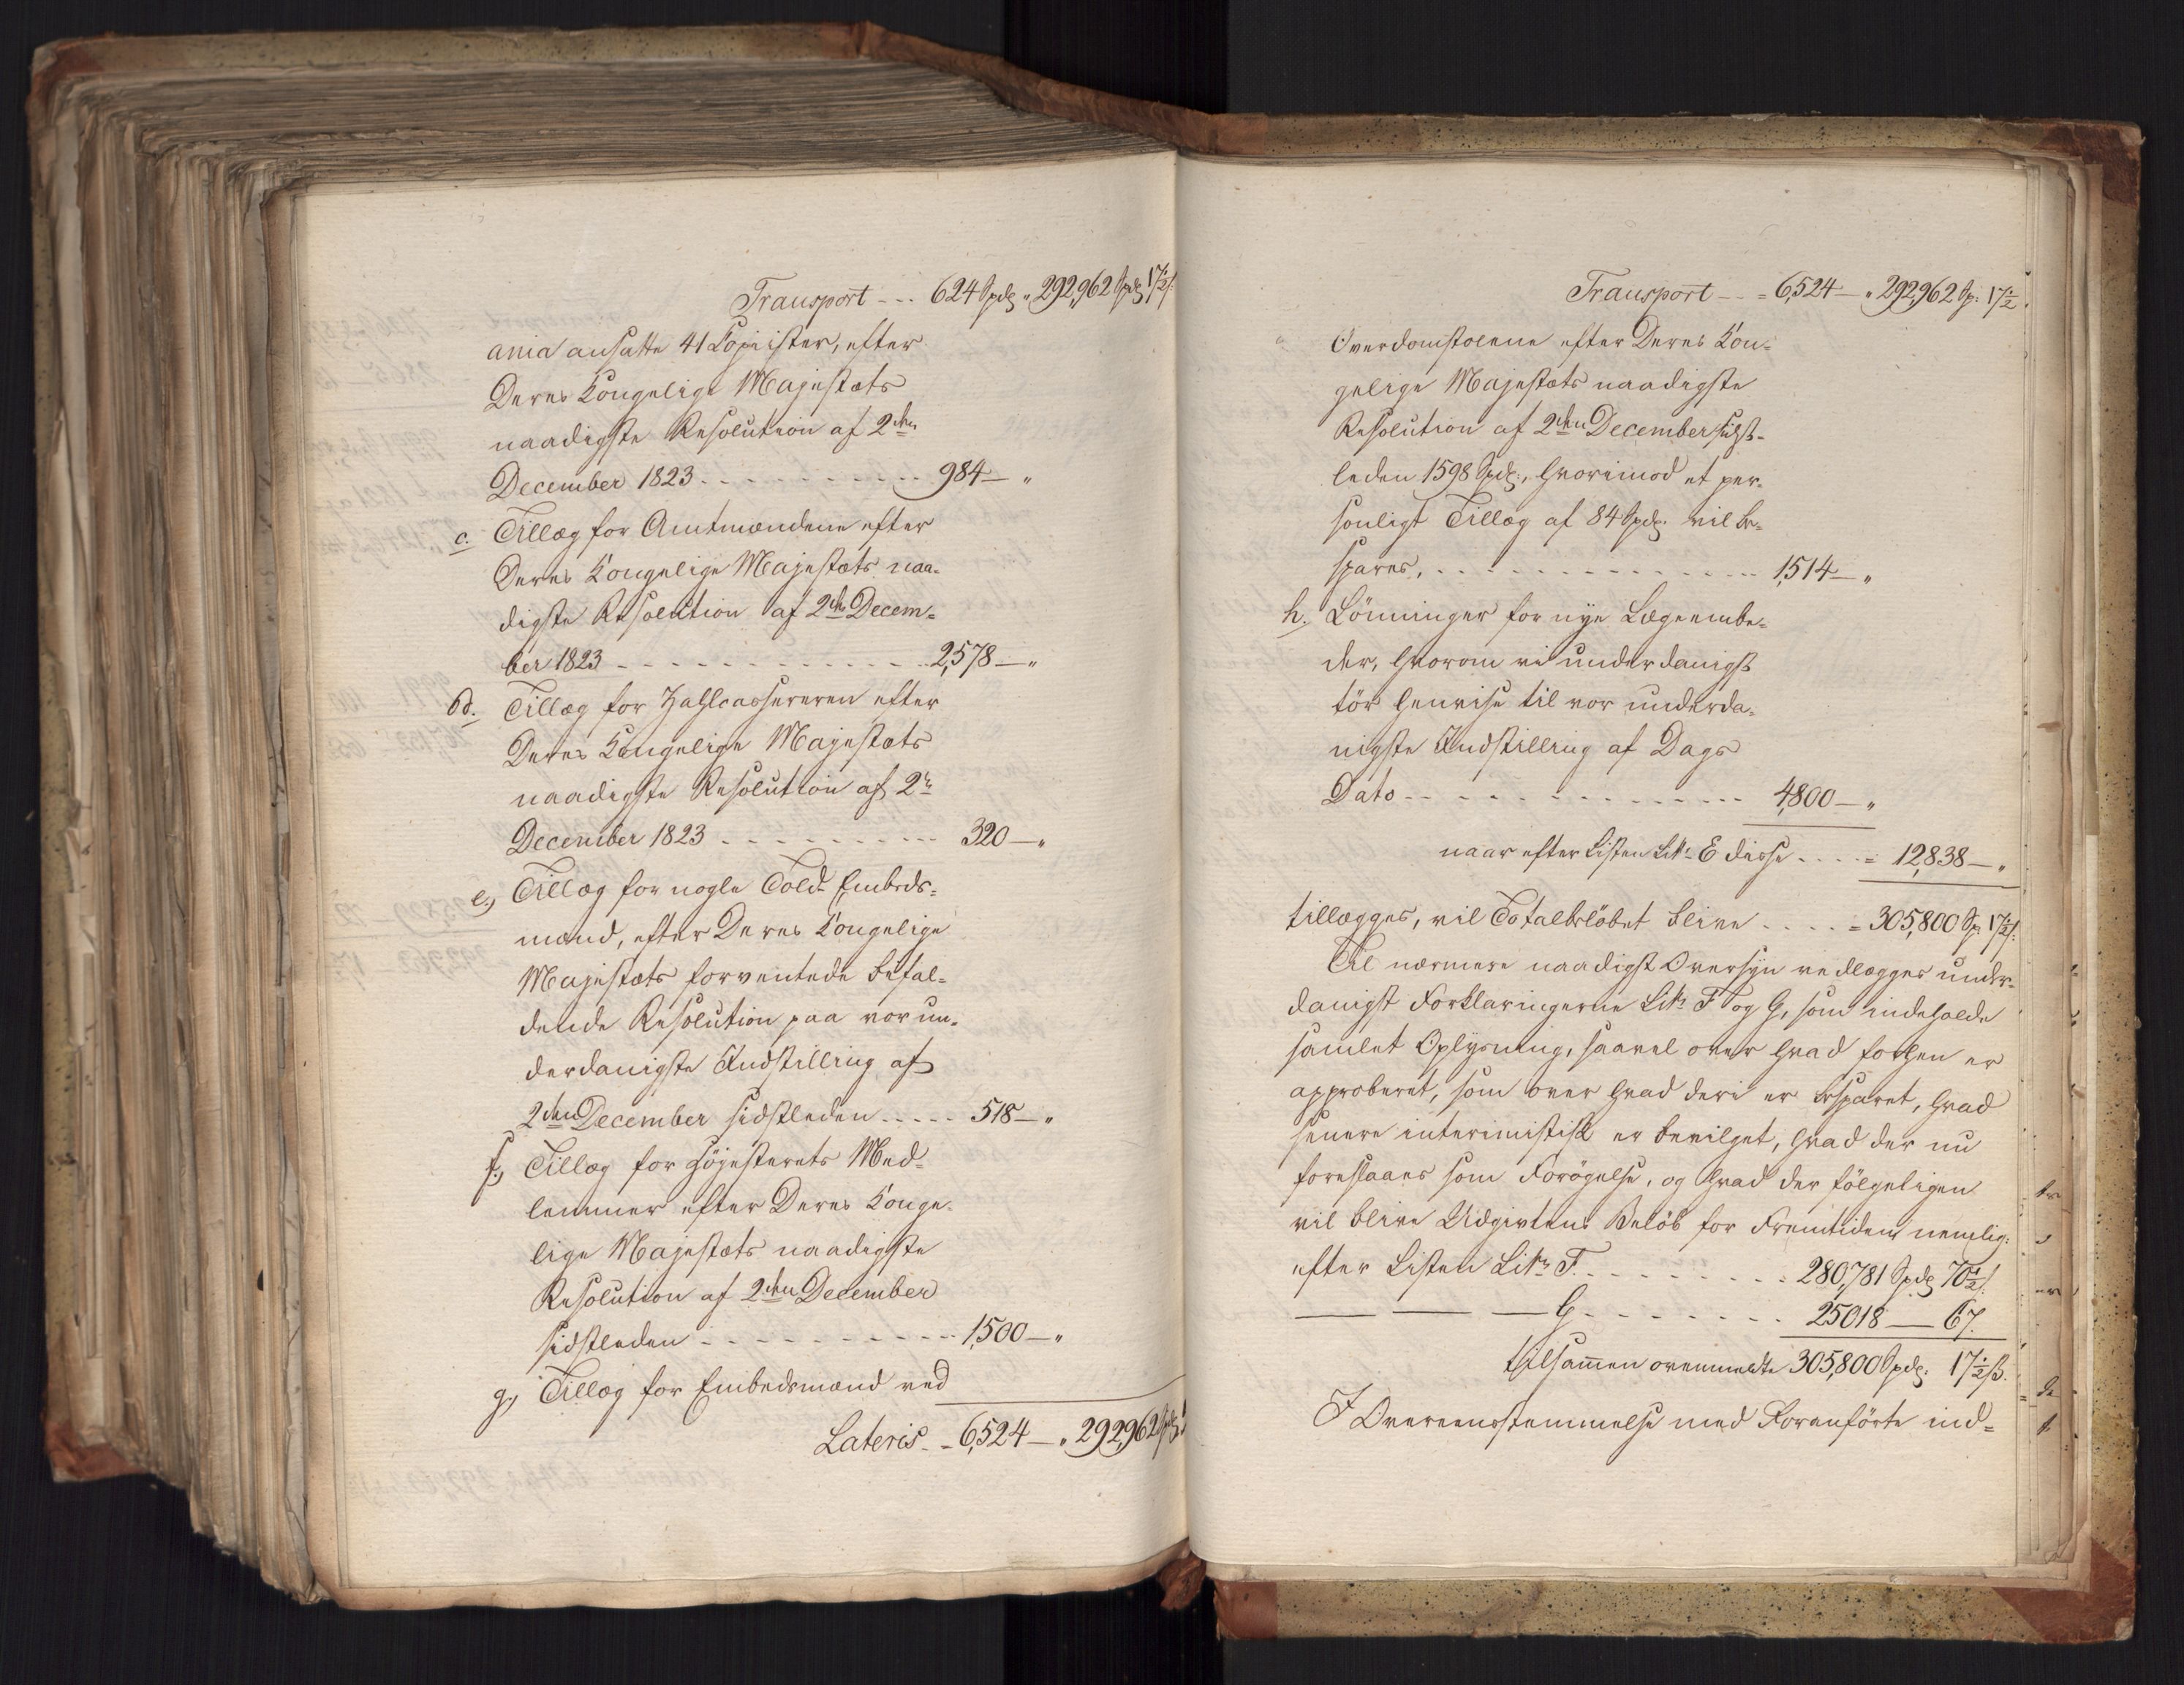 Transport - - - 624 Spd " 292,962 Spd 17½ ß.
ania ansatte 41 Copiister, efter
Deres Kongelige Majestæts
naadigste Resolution af 2den
December 1823 - - - - - 984 — "
c. Tillæg for Amtmændene efter
Deres Kongelige Majestæts naa-
digste Resolution af 2den Decem-
ber 1823 - - - - - 2,578 — "
d. Tillæg for Zahlcassereren efter
Deres Kongelige Majestæts
naadigste Resolution af 2n
December 1823 - - - - - 320 — "
e.) Tillæg for nogle Told-Embeds-
mænd, efter Deres Kongelige
Majestæts forventede bifal-
dende Resolution paa vor un-
derdanigste Indstilling af
2den December sidstleden - - - - - 518 — "
f.) Tillæg for Höjesterets Med-
lemmer efter Deres Konge-
lige Majestæts naadigste
Resolution af 2den December
sidstleden - - - - - 1,500 — "
g.) Tillæg for Embedsmænd ved
Lateris - - 6,524 — " 292,962 Spd
Transport - - = 6,524 — " 292,962 Sp: 17½
Overdomstolene efter Deres Kon-
gelige Majestæts naadigste
Resolution af 2den December sidst-
leden 1598 Spd:, hvorimod et per-
sonligt Tillæg af 84 Spd: vil be-
spares, - - - - - 1,514 — "
h. Lönninger for nye Lægeembe-
der, hvorom vi underdanigst
tör henvise til vor underda-
nigste Indstilling af Dags
Dato - - - - - 4,800 — "
naar efter Listen Litr. E disse - - - - = 12,838 — "
tillægges, vil Totalbelöbet blive - - - - = 305,800 Sp: 17½ ß:
Til nærmere naadigst Oversyn vedlægges under-
danigst Forklaringerne Litr. F og G, som indeholde
samlet Oplysning, saavel over hvad forhen er
approberet, som over hvad deri er besparet, hvad
senere interimistisk er bevilget, hvad der nu
foreslaaes som Forögelse, og hvad der fölgeligen
vil blive Udgivtens Belöb for Fremtiden, nemlig:
efter Listen Litr. F. - - - - - 280,781 Spd 70½ ß.
— — — G - - - - - 25018 — 67.
tilsammen ovenmeldte 305,800 Spd: 17½ ß.
I Overeensstemmelse med Foranförte ind-